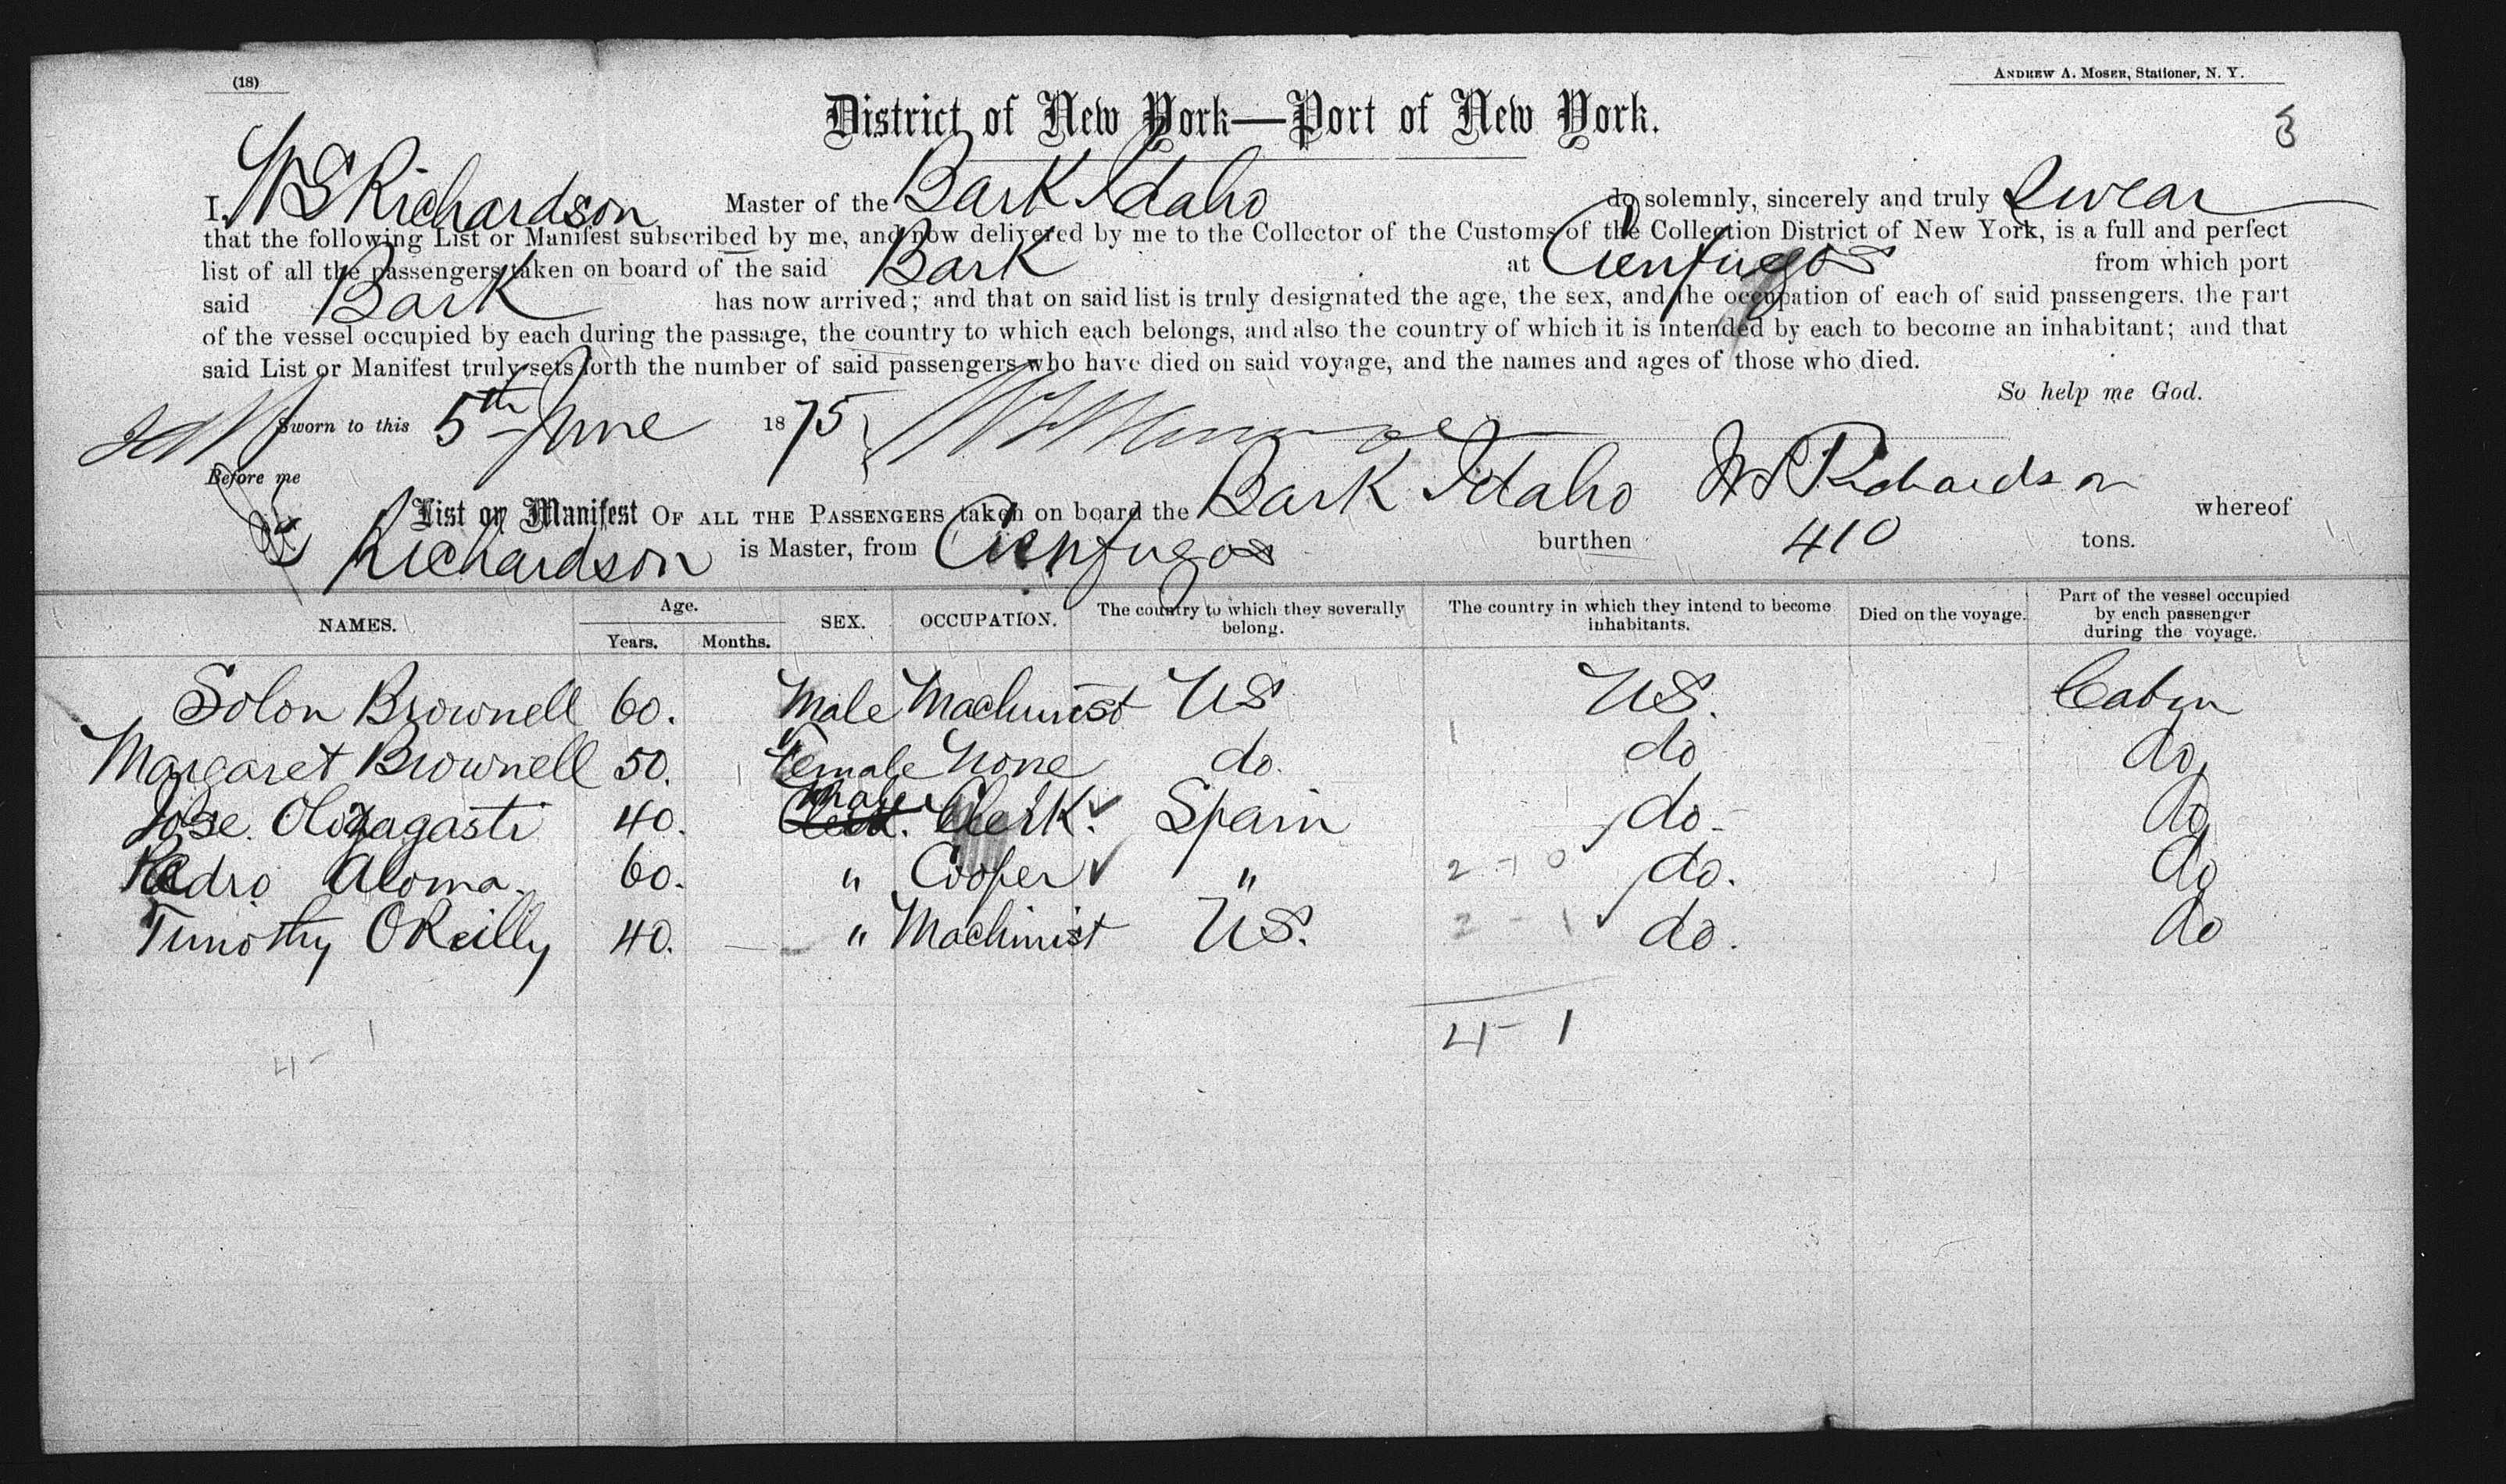 (18)
ANDREW A. MOSER, Stationer, N. Y.
District of New York—Port of New York.
I, W S Richardson Master of the Bark Idaho do solemnly, sincerely and truly Swear
that the following List or Manifest subscribed by me, and now delivered by me to the Collector of the Customs of the Collection District of New York, is a full and perfect
list of all the passengers taken on board of the said Bark at Cienfugos from which port
said Bark has now arrived; and that on said list is truly designated the age, the sex, and the occupation of each of said passengers, the part
of the vessel occupied by each during the passage, the country to which each belongs, and also the country of which it is intended by each to become an inhabitant; and that
said List or Manifest truly sets forth the number of said passengers who have died on said voyage, and the names and ages of those who died.
So help me God.
Sworn to this 5th June 1875
Before me
List or Manifest OF ALL THE PASSENGERS taken on board the Bark Idaho W S Richardson whereof
Richardson is Master, from Cienfugos burthen 410 tons.
NAMES. Age. Years. Months. SEX. OCCUPATION. The country to which they severally belong. The country in which they intend to become inhabitants. Died on the voyage. Part of the vessel occupied by each passenger during the voyage.
Solon Brownell 60. Male Machinist US US. Cabin
Margaret Brownell 50. Female None do. do do,
Jose Olozagasti 40. Male Clerk. Spain do - do
Pedro Aloma. 60. " Cooper " 2 - 0 do. do
Timothy OReilly 40. " Machinist US. 2 - 1 do. do
4 - 1
4 - 1